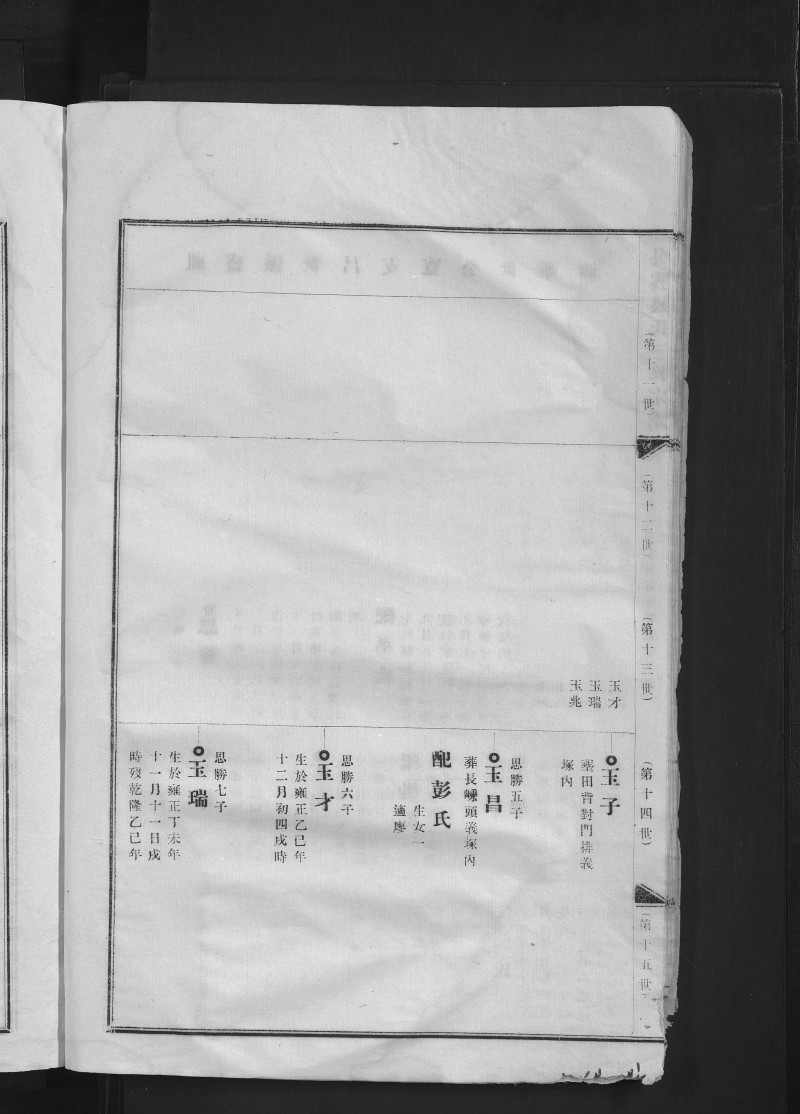 （第十一世）
（第十二世）
（第十三世）
（第十四世）
（第十五世）
玉才
玉瑞
玉兆
玉子
田背對門排義
塚內
思勝五子
玉昌
葬長嵊頭義塚內
配彭氏
生女一
適廖
思勝六子
玉才
生於雍正乙巳年
十二月初四戌時
思勝七子
玉瑞
生於雍正丁未年
十一月十一日戌
時歿乾隆乙巳年